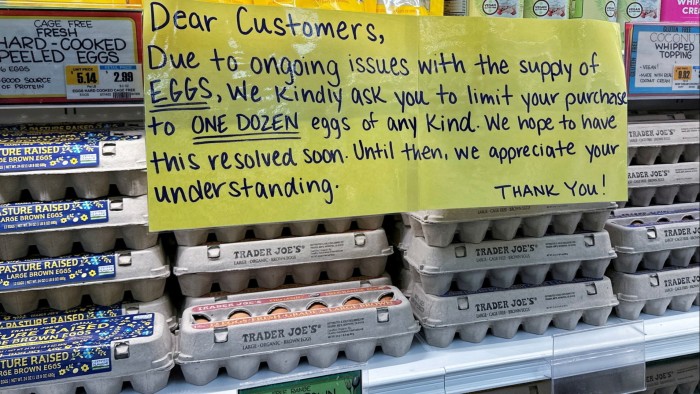 Dear Customers,
Due to ongoing issues with the supply of
EGGS, We Kindly ask you to limit your purchase
to ONE DOZEN eggs of any Kind. We hope to have
this resolved soon. Until then, we appreciate your
understanding.
THANK YOU!
CAGE FREE
FRESH
HARD-COOKED
PEELED EGGS
6 EGGS
GOOD SOURCE
OF PROTEIN
5.14
2.99
GLUTEN FREE
COCONUT
WHIPPED
TOPPING
VEGAN
TURE RAISED
GE BROWN EGGS
STURE RAISED
LARGE BROWN EGGS
PASTURE RAISED
LARGE BROWN EGGS
PASTURE RAISED
LARGE BROWN EGGS
TURE RAISED
TRADER JOE'S
LARGE · ORGANIC · BROWN EGGS
TRADER JOE'S
TRADER JOE'S
LARGE · ORGANIC · BROWN EGGS
TRADER JOE'S
TRADER JOE'S
TRADER JOE'S
TRADER JOE'S
TRADER JO
TRADER JO
FREE RANGE